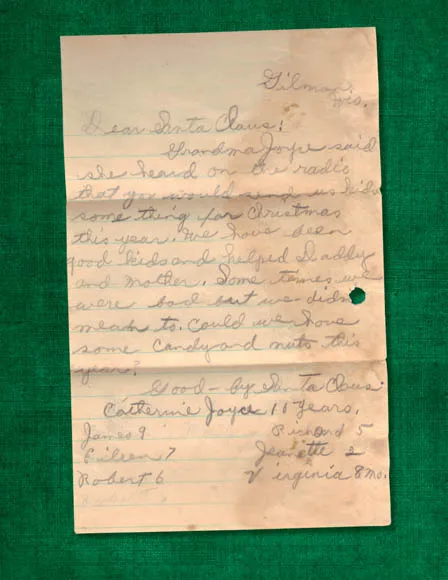 Gilman,
Wis.
Dear Santa Claus!
Grandma Joyce said
she heard on the radio
that you would send us kids
some thing for Christmas
this year. We have been
good kids and helped Daddy
and mother. Some times we
were bad but we didn
mean to. Could we have
some candy and nuts this
year?
Good-by Santa Claus.
Catherine Joyce 11 years.
James 9 Richard 5
Eileen 7 Jeanette 2
Robert 6 Virginia 8 mo.